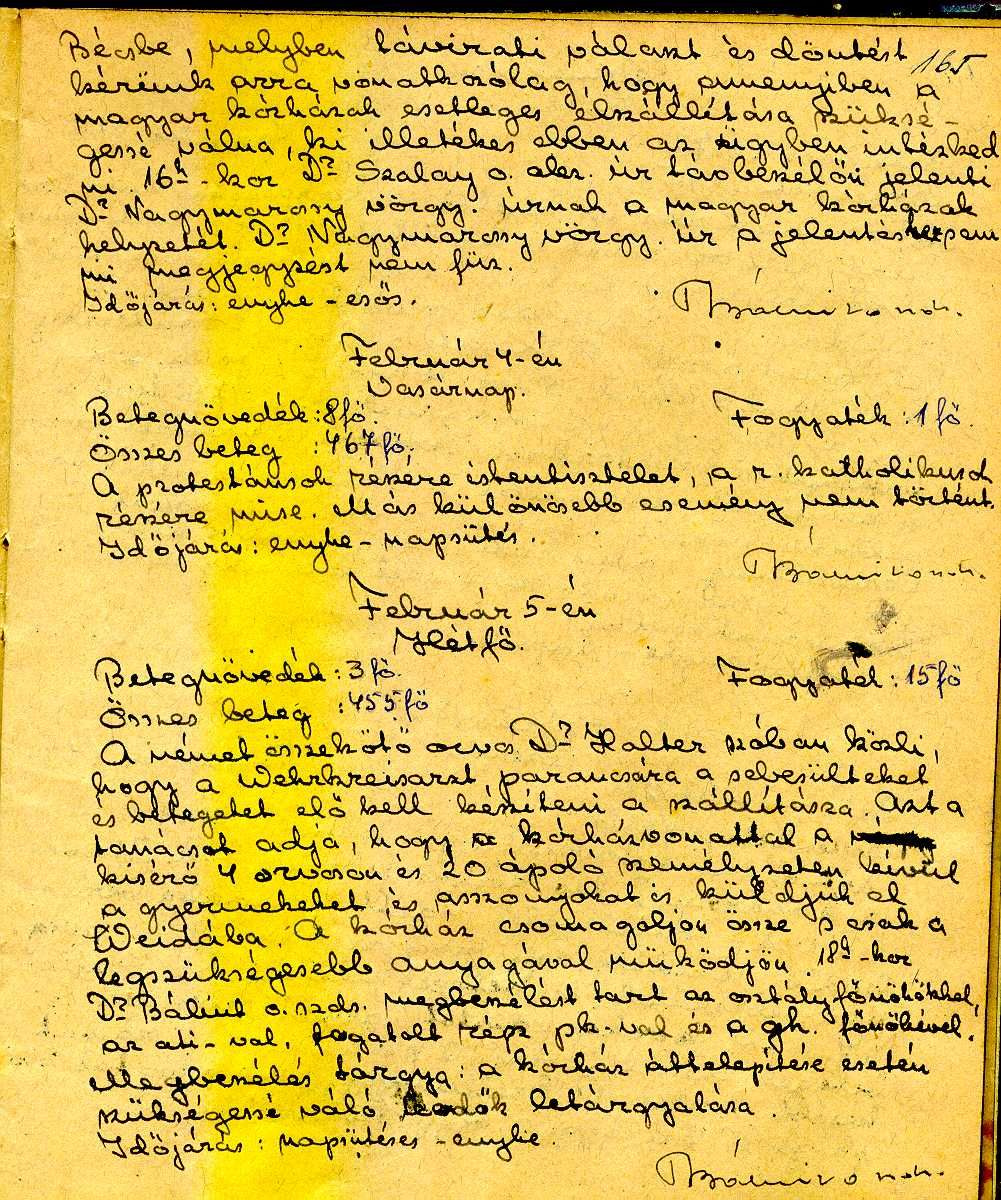 165
Bécsbe, melyben távirati választ és döntést
kérünk arra vonatkozólag, hogy amennyiben a
magyar kórházak esetleges elszállítása szüksé-
gessé válna, ki illetékes ebben az ügyben intézked
ni. 16h-kor Dr Szalay o. alez. úr távbeszélőn jelenti
Dr Nagymarossy vörgy. úrnak a magyar kórházak
helyzetét. Dr Nagymarossy vörgy. úr a jelentéshez sem
mi megjegyzést nem fűz.
Időjárás: enyhe - esős.
Február 4-én
Vasárnap.
Betegnövedék: 8 fő. Fogyaték: 1 fő.
Összes beteg : 467 fő.
A protestánsok részére istentisztelet, a r. katholikusok
részére mise. Más különösebb esemény nem történt.
Időjárás: enyhe - napsütés.
Február 5-én
Hétfő.
Betegnövedék: 3 fő. Fogyaték: 15 fő
Összes beteg : 455 fő
A német összekötő orvos Dr Halter szóban közli,
hogy a Wehrkreisarzt parancsára a sebesülteket
és betegeket elő kell készíteni a szállításra. Azt a
tanácsot adja, hogy a kórházvonattal a
kisérő 4 orvoson és 20 ápoló személyzeten kívül
a gyermekeket és asszonyokat is küldjük el
Weidába. A kórház csomagoljon össze s csak a
legszükségesebb anyagával működjön. 18h-kor
Dr Bálint o. szds. megbeszélést tart az osztályfőnökökkel,
az ati-val, fogatolt rész pk-val és a gh. főnökével.
Megbeszélés tárgya: a kórház áttelepítése esetén
szükségessé váló teendők letárgyalása.
Időjárás: napsütéses - enyhe.